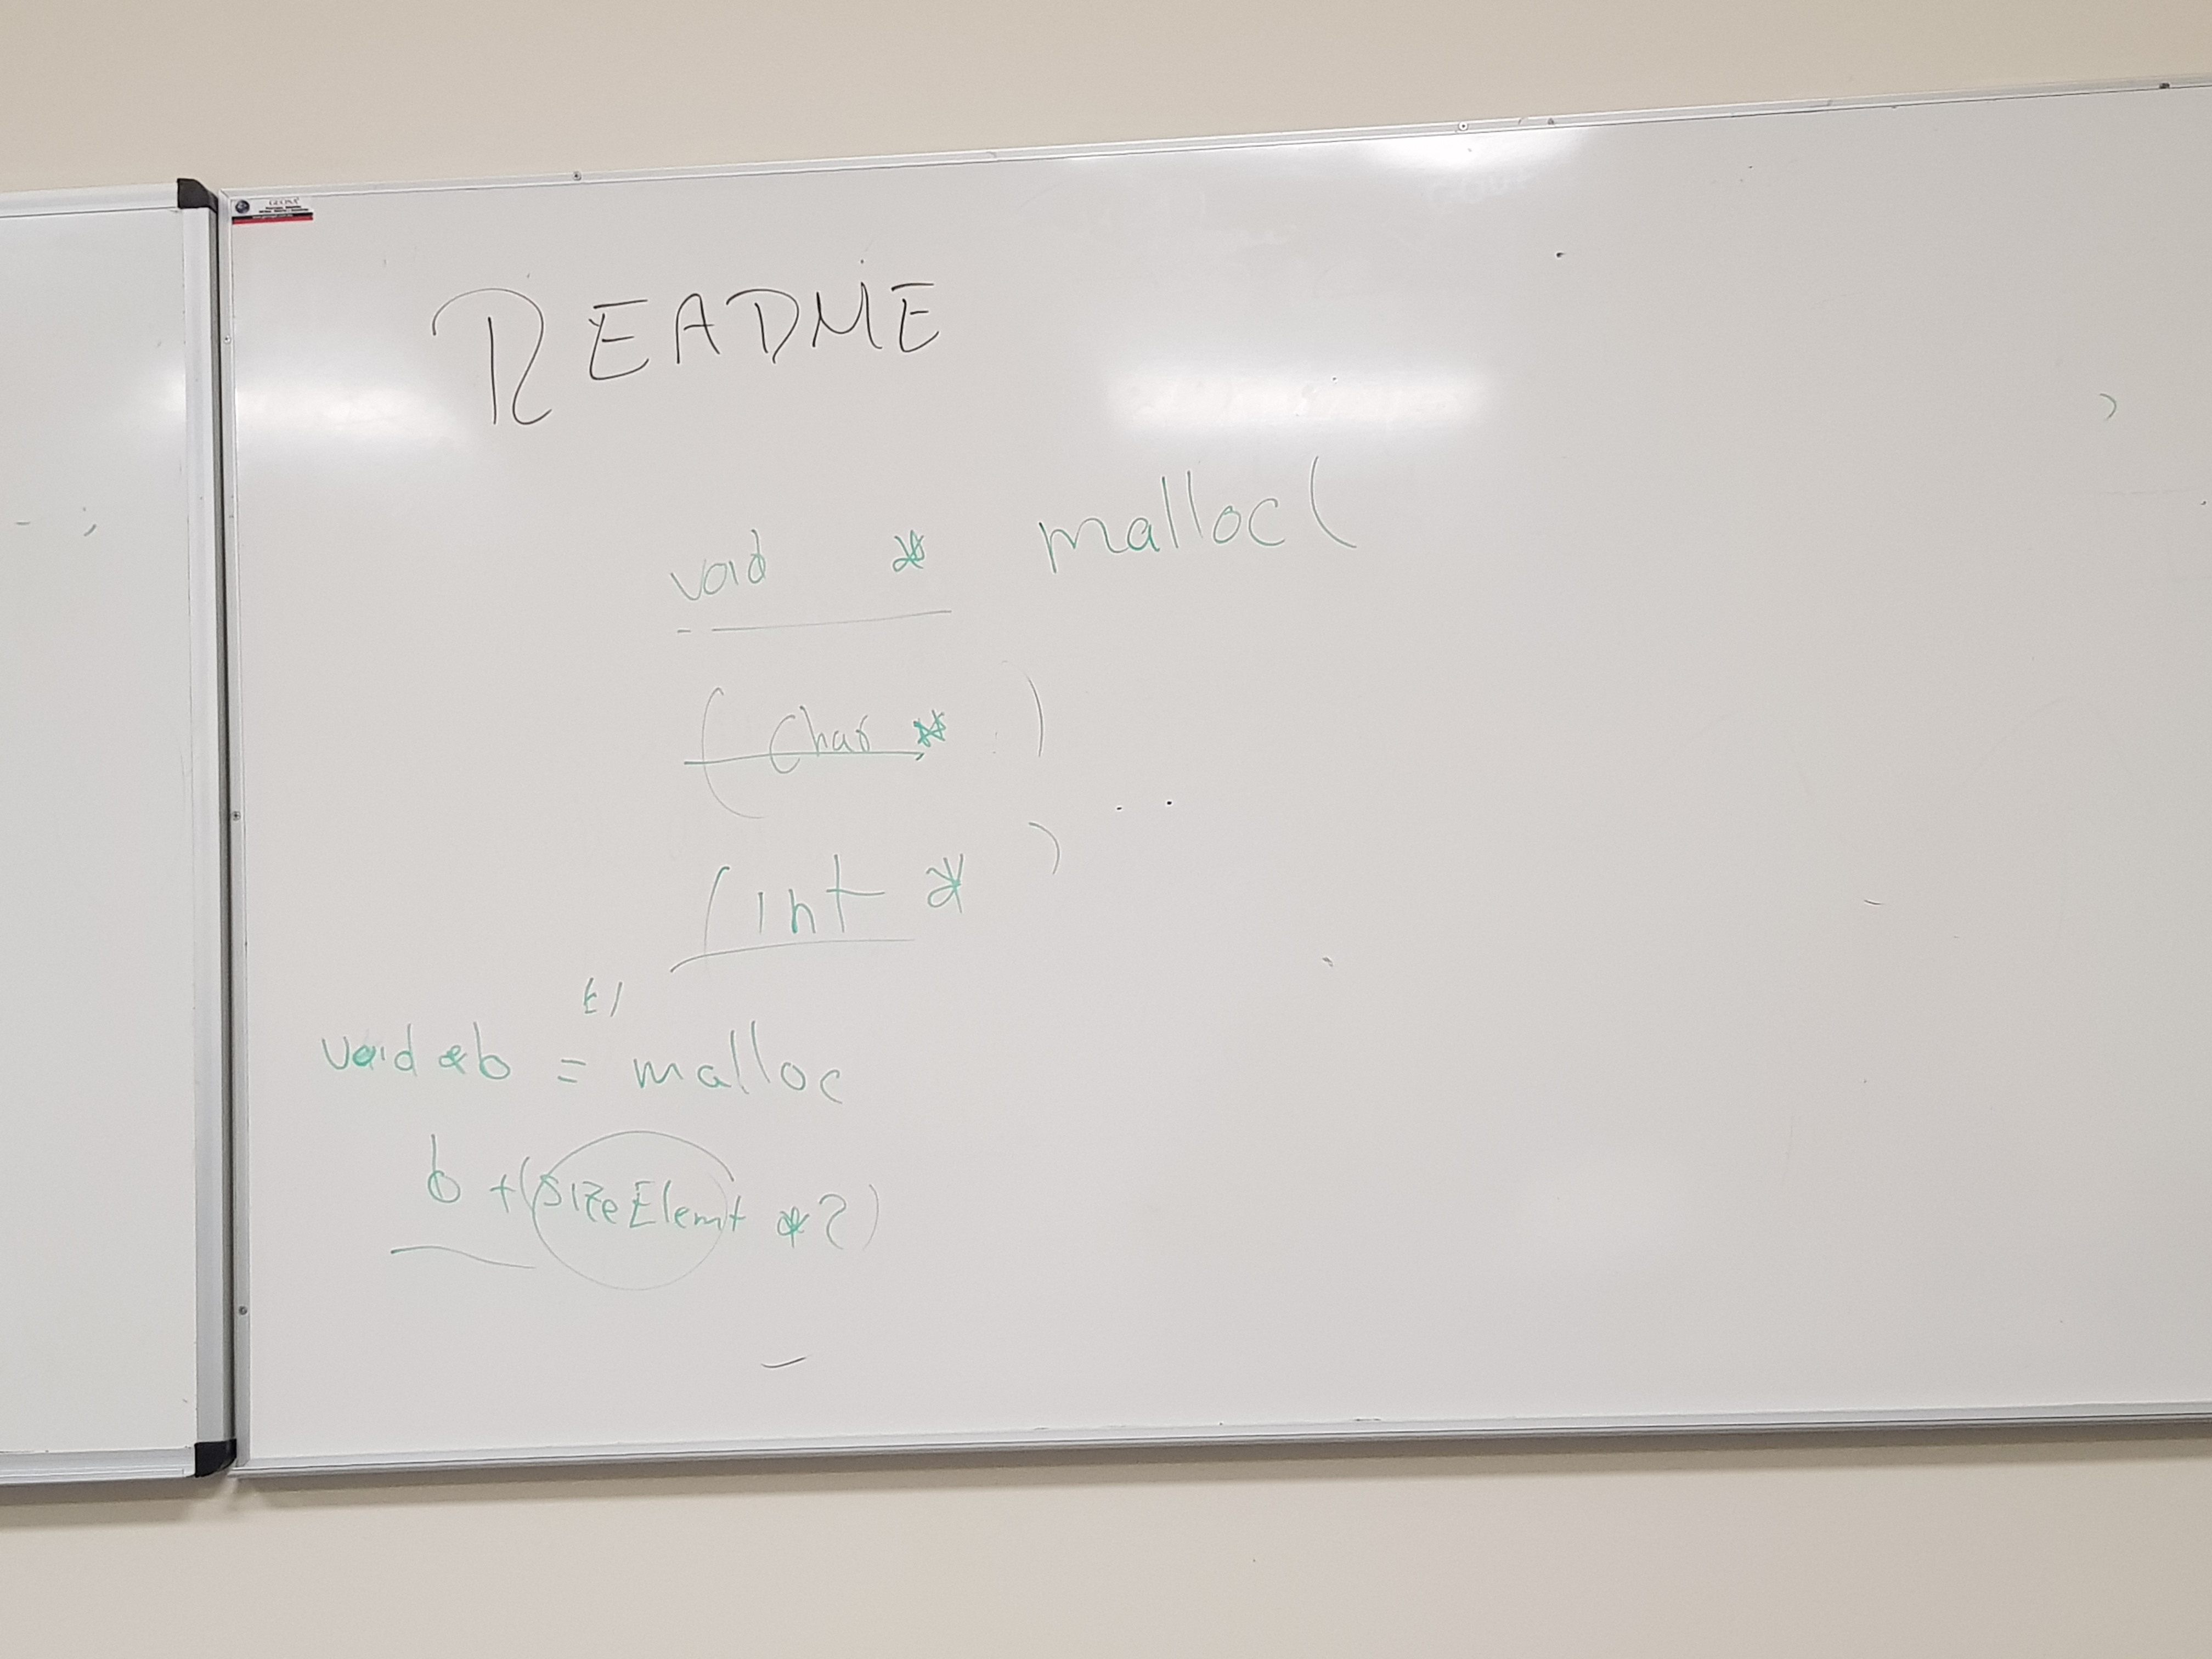 README
void * malloc(
(char **)
(int *)
void *b = malloc
b + (sizeElemt * 2)